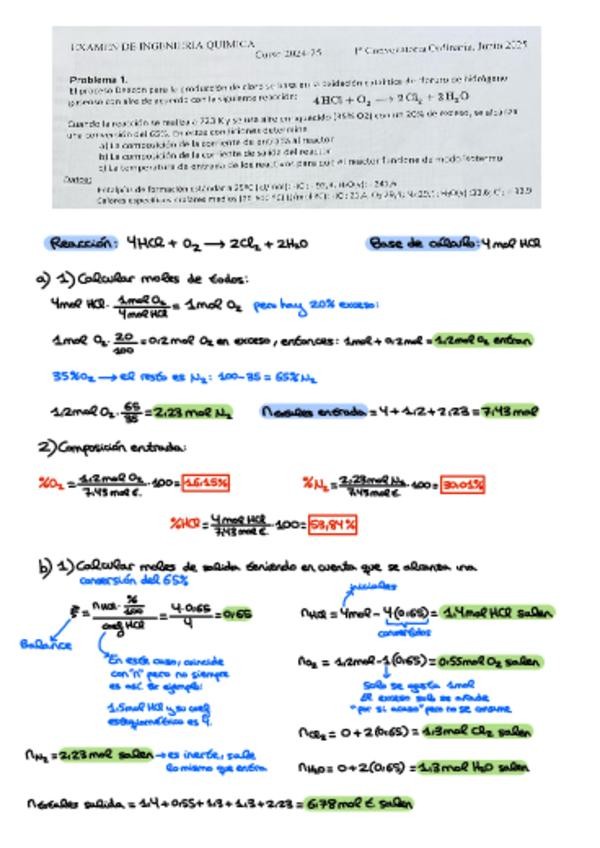 EXAMEN DE INGENIERÍA QUÍMICA
Curso 2024-25
1ª Convocatoria Ordinaria, Junio 2025
Problema 1.
El proceso Deacon para la producción de cloro se basa en la oxidación catalítica de cloruro de hidrógeno
gaseoso con aire de acuerdo con la siguiente reacción: 4 HCl + O₂ → 2 Cl₂ + 2 H₂O
Cuando la reacción se realiza a 723 K y se usa aire enriquecido (35% O2) con un 20% de exceso, se alcanza
una conversión del 65%. En estas condiciones determine
a) La composición de la corriente de entrada al reactor
b) La composición de la corriente de salida del reactor
c) La temperatura de entrada de los reactivos para que el reactor funcione de modo isotermo
Datos:
Entalpías de formación estándar a 25ºC
Calores específicos molares medios
Reacción: 4HCl + O₂ → 2Cl₂ + 2H₂O
Base de cálculo: 4 mol HCl
a) 1) Calcular moles de todos:
4mol HCl · 1mol O₂ / 4mol HCl = 1mol O₂ pero hay 20% exceso:
1mol O₂ · 20/100 = 0'2 mol O₂ en exceso, entonces: 1mol + 0'2mol = 1'2mol O₂ entran
35%O₂ → el resto es N₂: 100-35 = 65% N₂
1'2mol O₂ · 65/35 = 2'23 mol N₂
n totales entrada = 4 + 1'2 + 2'23 = 7'43 mol
2) Composición entrada:
%O₂ = 1'2mol O₂ / 7'43 mol t. · 100 = 16'15%
%N₂ = 2'23mol N₂ / 7'43mol t. · 100 = 30'01%
%HCl = 4mol HCl / 7'43 mol t. · 100 = 53'84%
b) 1) Calcular moles de salida teniendo en cuenta que se alcanza una
conversión del 65%
ξ = nHCl · %/100 / coef HCl = 4·0'65 / 4 = 0'65
Balance
En este caso, coincide
con "n" pero no siempre
es así
1.5mol HCl y su coef
estequiométrico es 4.
iniciales
nHCl = 4mol - 4(0'65) = 1'4mol HCl salen
convertidos
nO₂ = 1'2mol - 1(0'65) = 0'55mol O₂ salen
Solo se gasta 1mol
El exceso solo se añade
"por si acaso" pero no se consume
nCl₂ = 0 + 2(0'65) = 1'3mol Cl₂ salen
nN₂ = 2'23 mol salen → es inerte, sale
lo mismo que entra
nH₂O = 0 + 2(0'65) = 1'3 mol H₂O salen
n totales salida = 1'4 + 0'55 + 1'3 + 1'3 + 2'23 = 6'78 mol t salen